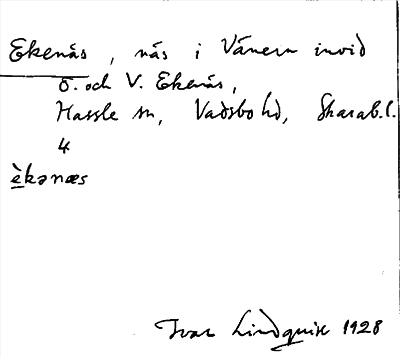 Ekenäs, näs i Vänern invid
Ö. och V. Ekenäs,
Hassle sn, Vadsbo hd, Skarab.l.
4
èkənæs
Ivar Lindquist 1928